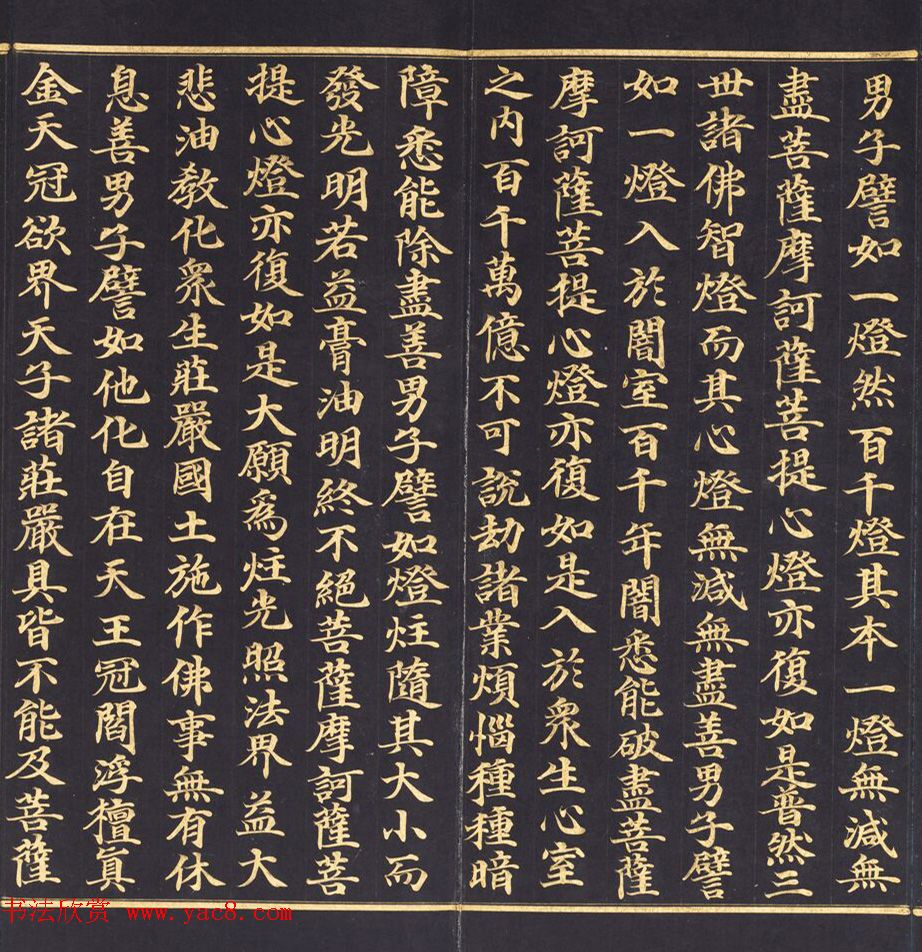 男子譬如一燈然百千燈其本一燈無減無
盡菩薩摩訶薩菩提心燈亦復如是普然三
世諸佛智燈而其心燈無減無盡善男子譬
如一燈入於闇室百千年闇悉能破盡菩薩
摩訶薩菩提心燈亦復如是入於眾生心室
之內百千萬億不可說劫諸業煩惱種種暗
障悉能除盡善男子譬如燈炷隨其大小而
發光明若益膏油明終不絕菩薩摩訶薩菩
提心燈亦復如是大願為炷光照法界益大
悲油教化眾生莊嚴國土施作佛事無有休
息善男子譬如他化自在天王冠閻浮檀真
金天冠欲界天子諸莊嚴具皆不能及菩薩
书法欣赏 www.yac8.com